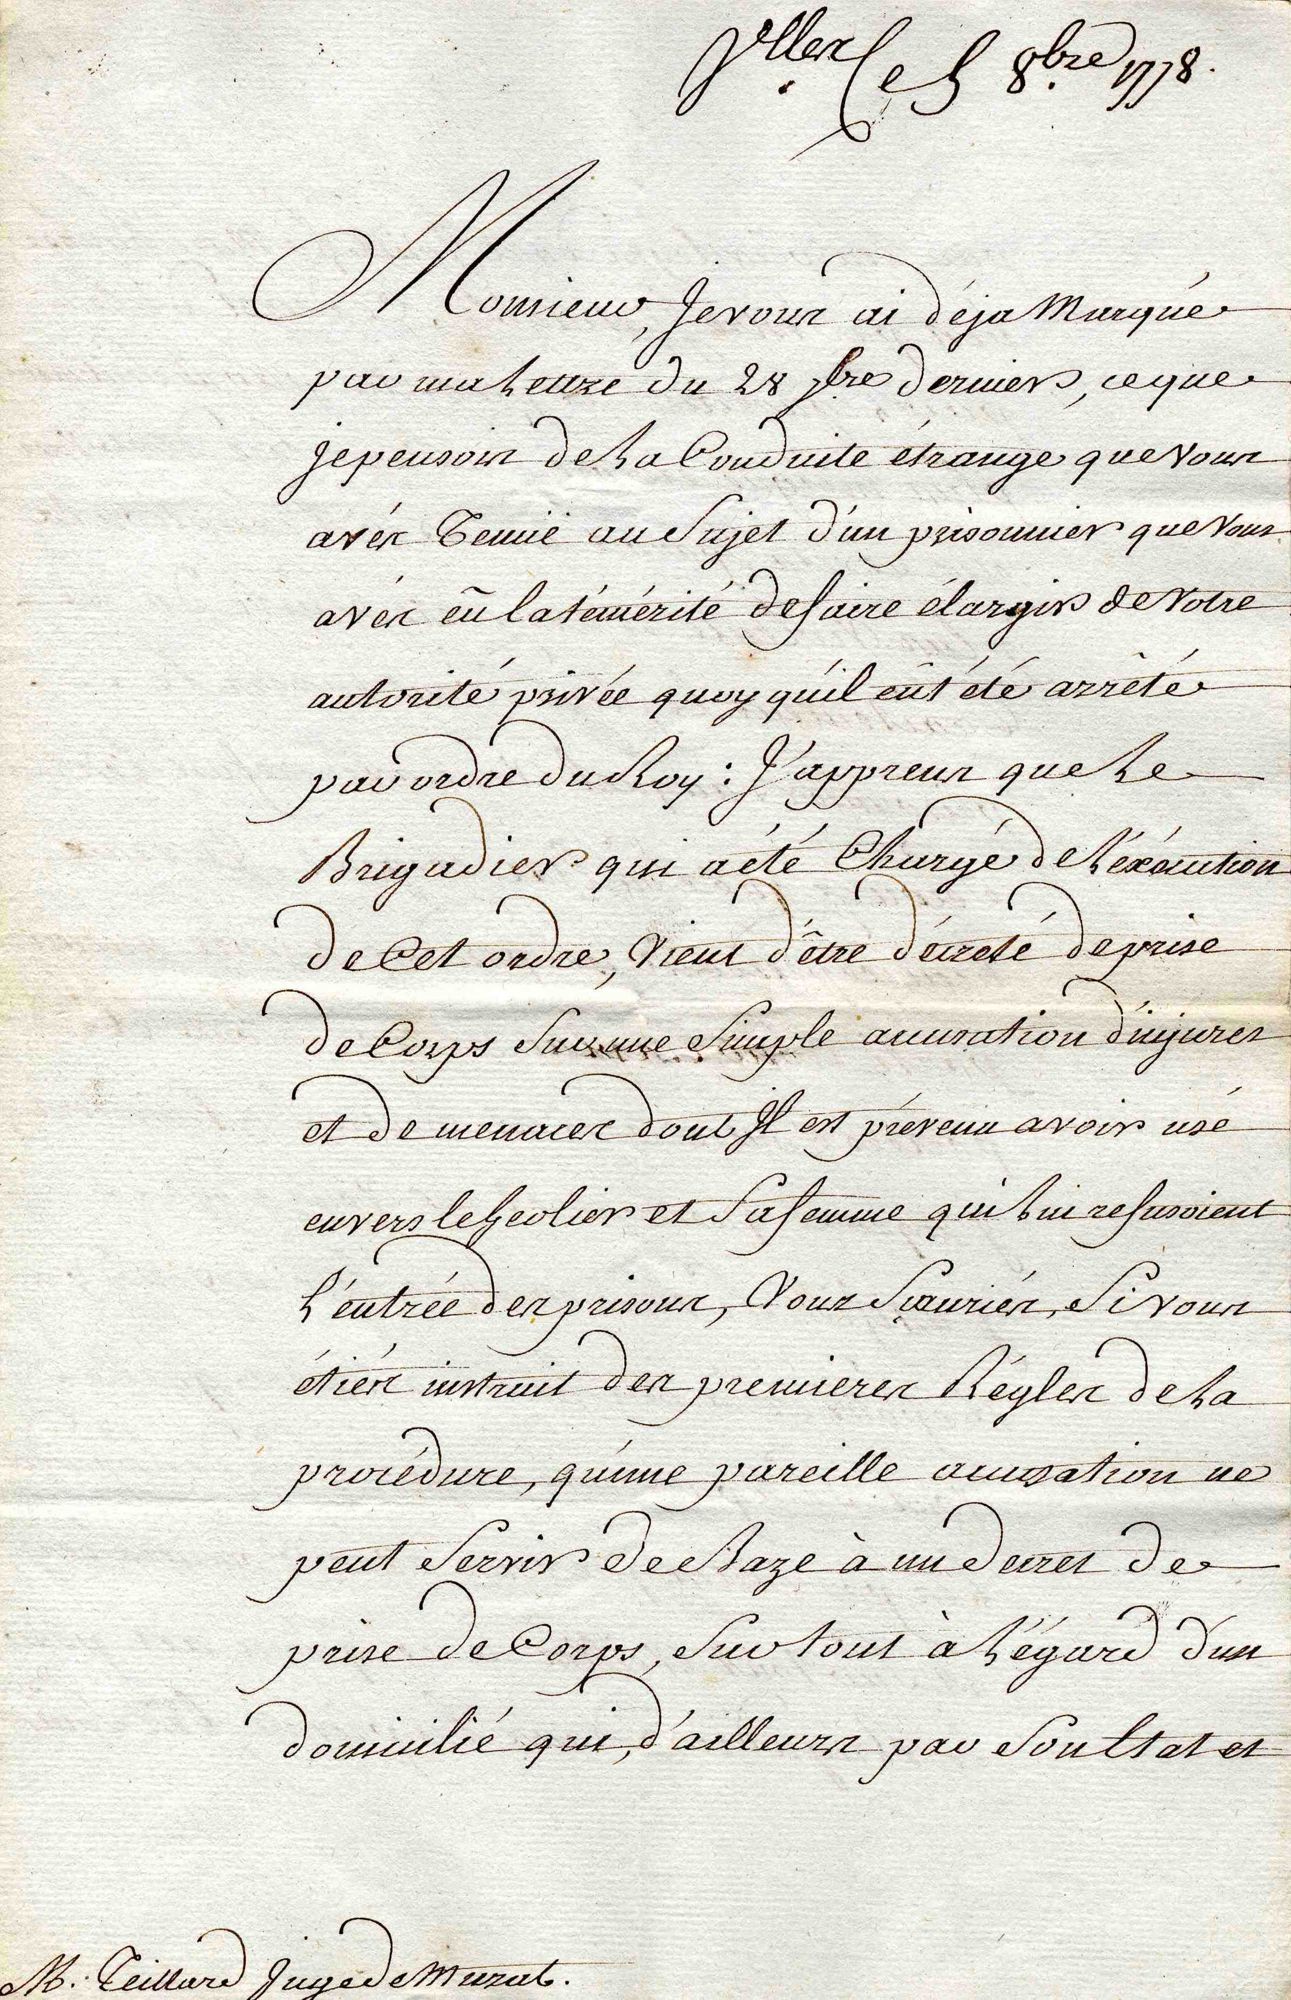 Vlles Le 5 8bre 1778.
Monsieur, Je vous ai déja Marqué
par ma Lettre du 28 7bre dernier, ce que
je pensois de La Conduite étrange que vous
avés Tenuë au Sujet d'un prisonnier que vous
avés eû la témérité de faire élargir de votre
autorité privée quoy qu'il eût été arrêté
par ordre du Roy: J'apprens que Le
Brigadier qui a été Chargé de L'éxécution
de Cet ordre, Vient d'être décreté de prise
de Corps Sur une Simple accusation d'injures
et de menaces dont Il est prévenu avoir usé
envers le Geolier et Sa femme qui Lui refusoient
L'entrée des prisons, Vous Sçauriés, Si vous
étiés instruit des premieres Régles de La
procédure, qu'une pareille accusation ne
peut Servir de Baze à un decret de
prise de Corps, Sur tout à L'égard d'un
domicilié qui, d'ailleurs par Son Etat et
M. Teillard Juge de Murat.